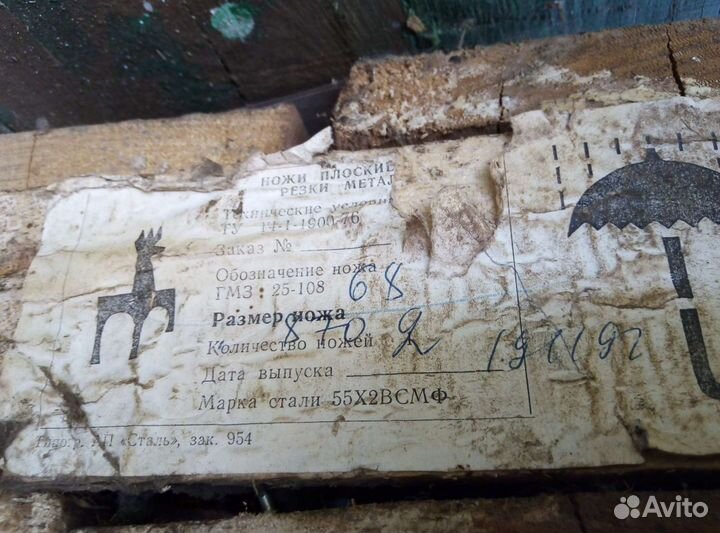 НОЖИ ПЛОСКИЕ
РЕЗКИ МЕТАЛ
Технические услови
ТУ 14-1-1900-76
Заказ №
Обозначение ножа
ГМЗ 25-108 68
Размер ножа 870
Количество ножей 2
Дата выпуска
Марка стали 55Х2ВСМФ
«Сталь», зак. 954
Avito